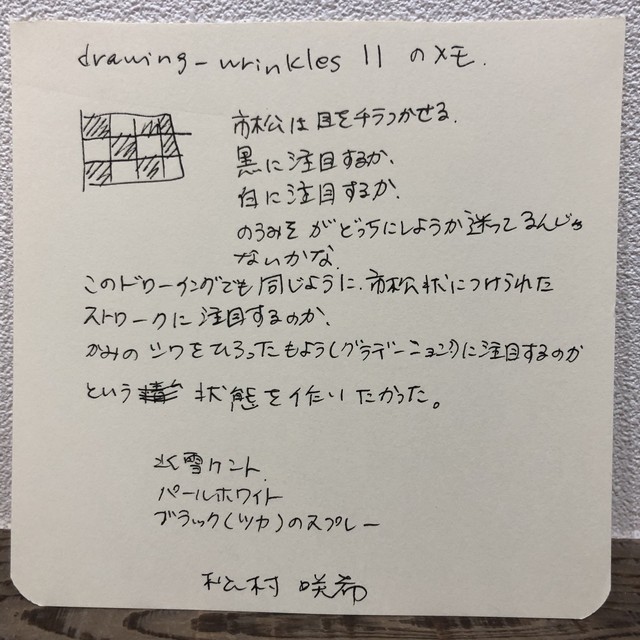 drawing-wrinkles 11 のメモ.
市松は目をチラつかせる.
黒に注目するか、
白に注目するか.
のうみそがどっちにしようか迷ってるんじゃ
ないかな.
このドローイングでも同じように、市松状につけられた
ストロークに注目するのか、
かみのシワをひろったもよう(グラデーション)に注目するのか
という 状態を作りたかった。
氷雪ケント
パールホワイト
ブラック(ツカ)のスプレー
松村 咲希